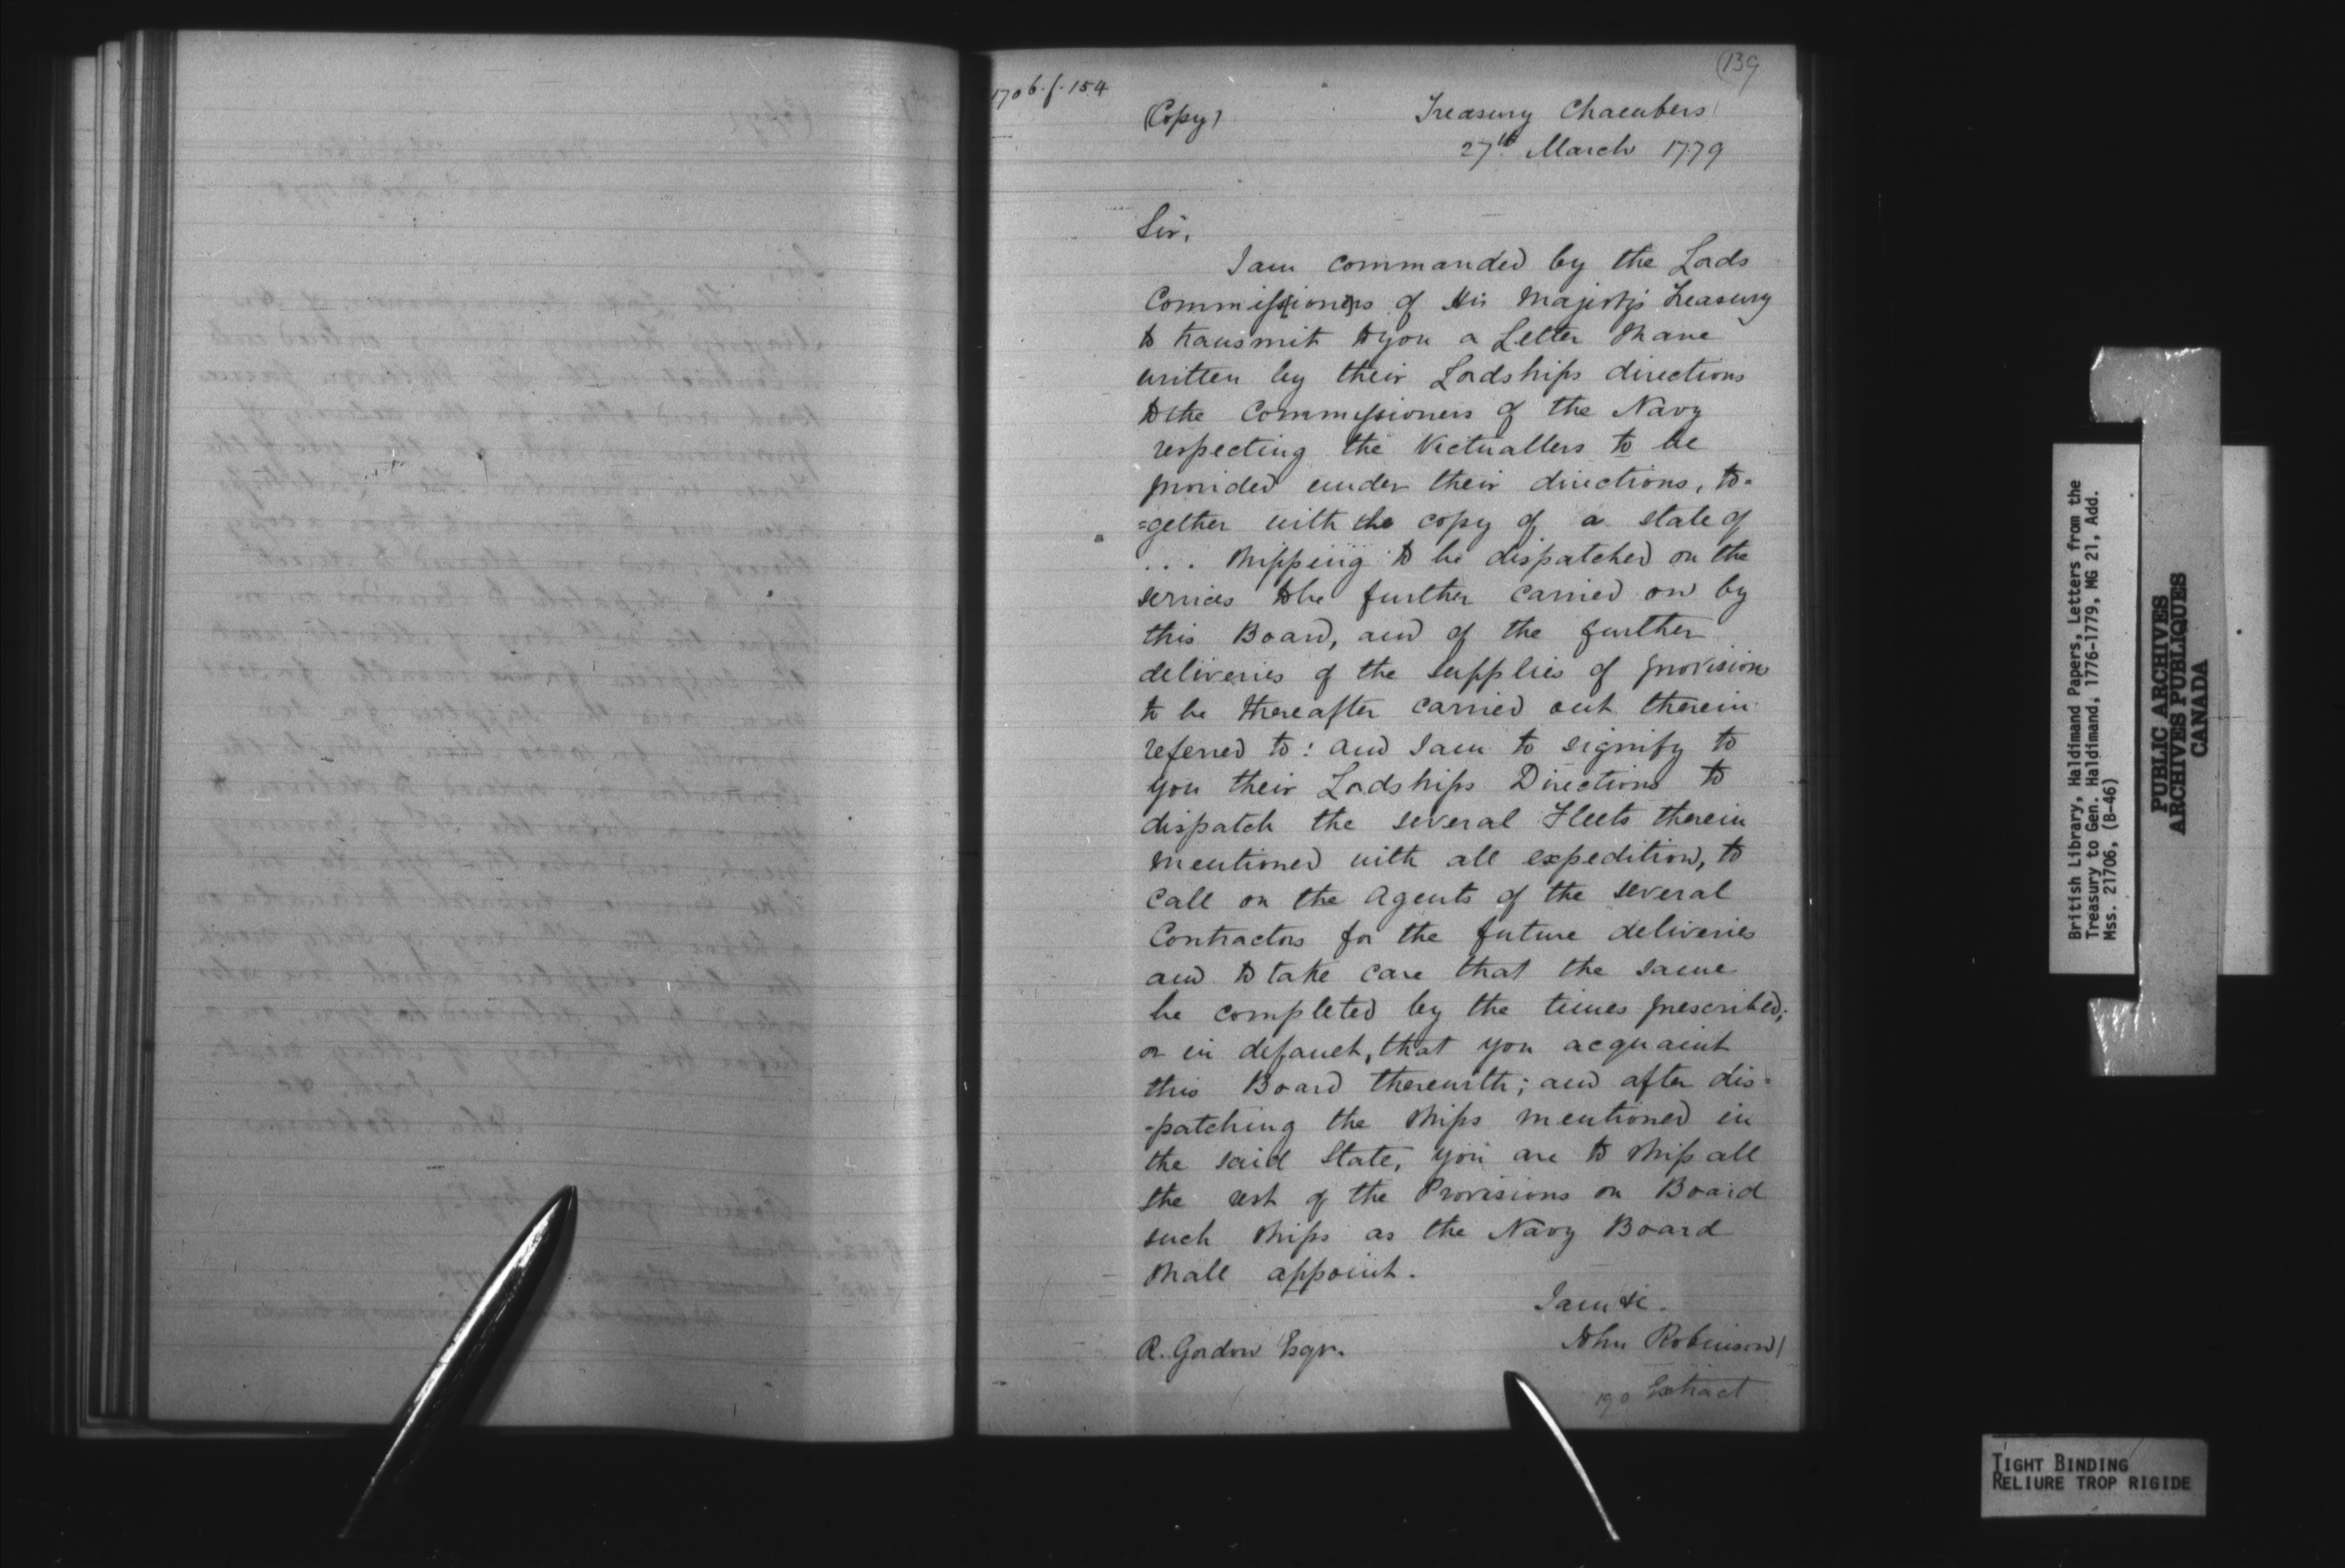 (139
1706.f.154
(Copy)
Treasury Chambers
27th March 1779
Sir,
I am commanded by the Lords
Commissioners of His Majesty's Treasury
to transmit to you a Letter I have
written by their Lordships directions
to the Commissioners of the Navy
respecting the Victuallers to be
provided under their directions, to-
=gether with the copy of a state of
... shipping to be dispatched on the
services to be further carried on by
this Board, and of the further
deliveries of the supplies of provision
to be thereafter carried out therein
referred to: and I am to signify to
you their Lordships Directions to
dispatch the several Fleets therein
mentioned with all expedition, to
call on the Agents of the several
Contractors for the future deliveries
and to take care that the same
be completed by the times prescribed;
or in default, that you acquaint
this Board therewith; and after dis-
-patching the ships mentioned in
the said State, you are to ship all
the rest of the Provisions on Board
such ships as the Navy Board
shall appoint.
I am &c.
John Robinson
R. Gordon Esqr.
190 Extract
British Library, Haldimand Papers, Letters from the
Treasury to Gen. Haldimand, 1776-1779, MG 21, Add.
Mss. 21706, (B-46)
PUBLIC ARCHIVES
ARCHIVES PUBLIQUES
CANADA
TIGHT BINDING
RELIURE TROP RIGIDE